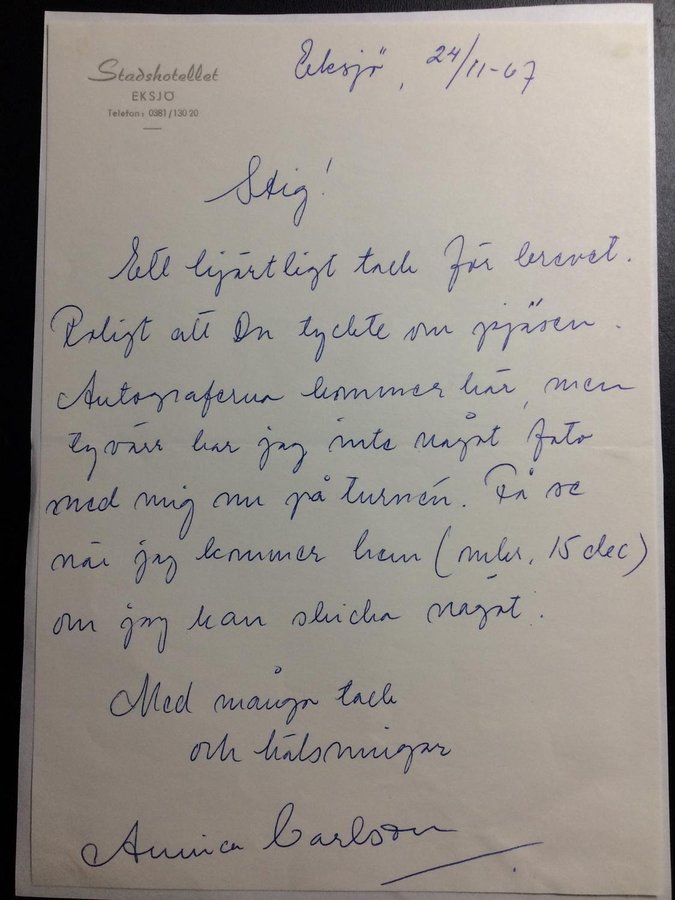 Stadshotellet
EKSJÖ
Telefon: 0381/130 20
Eksjö, 24/11-67
Stig!
Ett hjärtligt tack för brevet.
Roligt att Du tyckte om pjäsen.
Autograferna kommer här, men
tyvärr har jag inte något foto
med mig nu på turnén. Få se
när jag kommer hem (mkr. 15 dec)
om jag kan skicka något.
Med många tack
och hälsningar
Annica Carlson